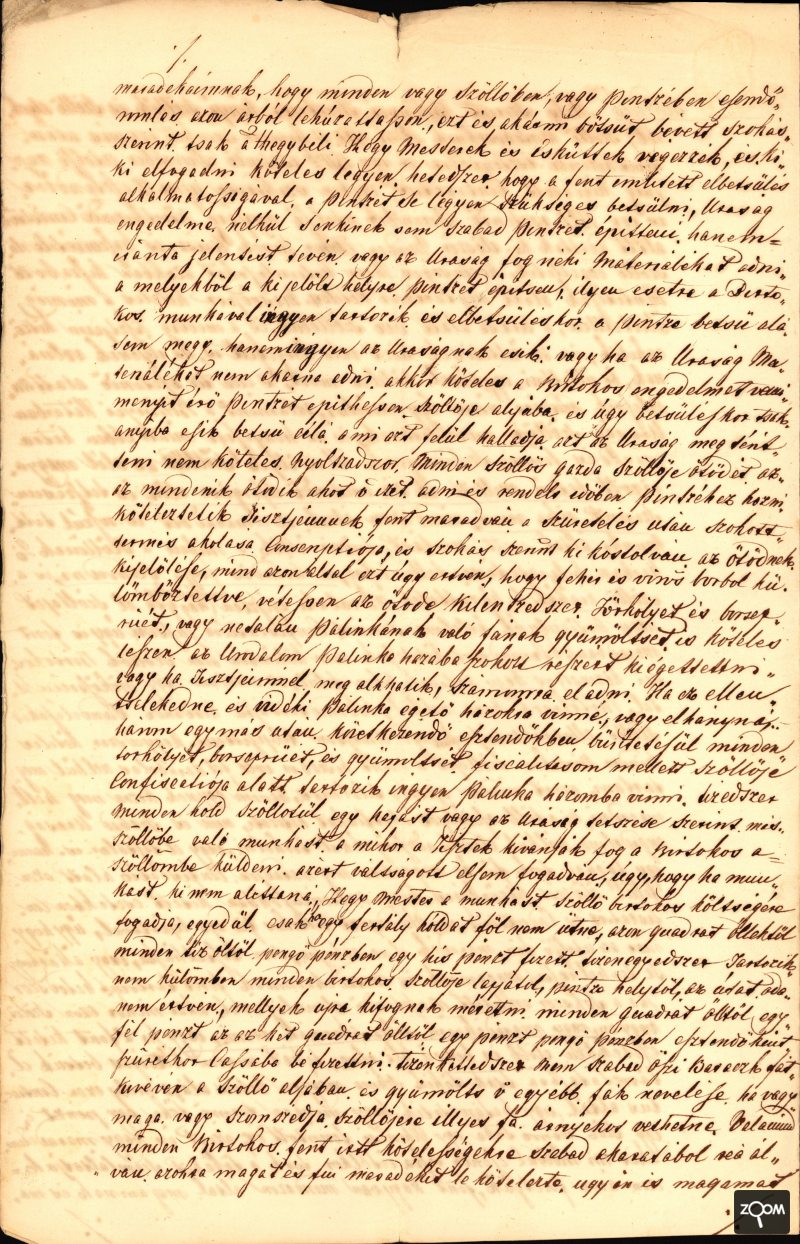 ./.
maradékaimnak, hogy minden vagy Szöllőben, vagy Pintzében esendő
romlás azon árból lehúzattassen, ezt és akármi bötsüt, bévett szokás
szerint tsak a Hegybéli Hegy Mesterek és esküttek vegezzék, és ki
ki elfogadni köteles legyen, hetedszer, hogy a fent emlitett elbetsülés
alkalmatosságával, a Pintzét se légyen szükséges betsülni, Uraság
engedelme nélkül senkinek sem szabad Pintzét épitteni, hanem
eránta jelentést tevén vagy az Uraság fog néki Materialékat adni
a melyekböl a kijelölt helyre Pintzét épitsen, ilyen esetre a Birto„
kos munkával ingyen tartozik és elbetsüléskor a Pintze betsü alá
sem megy, hanem ingyen az Uraságnak esik: vagy ha az Uraság Ma„
teriálékot nem akarna adni, akkor köteles a Birtokos engedelmet venni
menyit érö Pintzét epithessen szöllöje aljába, és úgy betsüléskor tsak
anyiba esik betsü alá, a mi ezt felül halladja azt az Uraság megtérít„
teni nem köteles. Nyoltzadszor, Minden szöllös gazda szöllöje ötödét, az„
az mindenik ötödik akot ö izét adni és rendelt időben Pintzéhez hozni
köteleztetik Tisztjeimnek fent maradván a szüretelés után szokott
termés akolása Conscriptiója, és szokás szerint ki kóstolván az ötödnek
kijelölése, mind azon által ezt úgy értvén, hogy fehér és vörös borbol kü„
lömböztettve, vétessen az ötöde Kilentzedszer. Törkölyet és borsep„
rüét, vagy netalán Pálinkának való fáinak gyümöltsét is köteles
lészen az Uradalom Pálinka házába szokott részért kiégettettni
vagy ha Tisztjeimmel meg alkhatik, számomra eladni. Ha ez ellen
tselekedne, és vidéki Pálinka égetö házokra vinné, vagy elhányná,
három egymás után következendő esztendőkben büntetésül minden
törkölyét, borseprüét, és gyümöltsét fiscalitasom mellett szöllöje
Confiscatiója alatt tartozik ingyen Pálinka házomba vinni. tizedszer
Minden hold szöllötül egy kapást vagy az Uraság tetszése szerint más
szöllöbe való munkást a mikor a Tisztek kivánják fog a Birtokos a
szöllömbe küldeni, azért váltságott elsem fogadván, úgy, hogy ha mun„
kást ki nem alittaná, Hegy mester a munkást szöllö birtokos költségére
fogadja, egyedül, csak ha egy fertály holdat föl nem ütne, azon quadrat öllektül
minden tiz öltöl pengö pénzben egy kis pénzt fizett. tizenegyedszer Tartozik
nem külömben minden birtokos szöllöje lapjátul, pintze helytöl, az útat oda
nem értvén, mellyek ujra kifognak méretni minden quadrat öltöl, egy
fél pénzt az az két quadrat öltöl egy pénzt pengö pénzben esztendőként
szüretkor Cassába bé fizettni. Tizenkettedszer Nem szabad öszi Baraczk fát
kivéven a szöllö aljában és gyümölts ö egyébb fák nevelése, ha vagy
maga vagy szomszédja szöllöjére illyes fa árnyekot vethetne. Valamint
minden Birtokos fent irtt kötelességekre szabad akaratából reá ál„
ván azokra magát és fiui maradékit le kötelezte, ugy én is magamat
./.
ZOOM